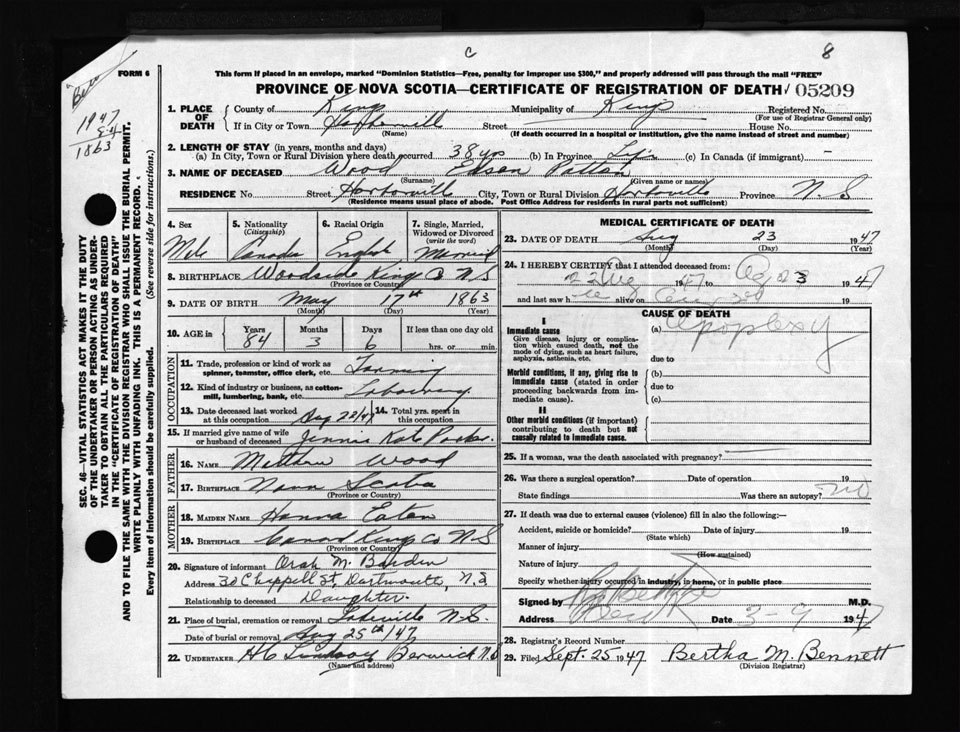 C
8
Ber
1947
84
1863
FORM 6
This form if placed in an envelope, marked "Dominion Statistics—Free, penalty for improper use $300," and properly addressed will pass through the mail "FREE"
PROVINCE OF NOVA SCOTIA—CERTIFICATE OF REGISTRATION OF DEATH 05209
1. PLACE OF DEATH County of Kings Municipality of Kings Registered No.
(For use of Registrar General only)
If in City or Town Harborville Street House No.
(Name) (If death occurred in a hospital or institution, give the name instead of street and number)
2. LENGTH OF STAY (in years, months and days)
(a) In City, Town or Rural Division where death occurred 38 yrs (b) In Province Life (c) In Canada (if immigrant) —
3. NAME OF DECEASED Wood Edson Patton
(Surname) (Given name or names)
RESIDENCE No. Street Harborville City, Town or Rural Division Harborville Province N.S
(Residence means usual place of abode. Post Office Address for residents in rural parts not sufficient)
4. Sex Male
5. Nationality (Citizenship) Canada
6. Racial Origin English
7. Single, Married, Widowed or Divorced (write the word) Married
8. BIRTHPLACE Woodside Kings Co N.S
(Province or Country)
9. DATE OF BIRTH May 17th 1863
(Month) (Day) (Year)
10. AGE in Years 84 Months 3 Days 6 If less than one day old hrs. or min.
OCCUPATION
11. Trade, profession or kind of work as spinner, teamster, office clerk, etc. Farming
12. Kind of industry or business, as cotton-mill, lumbering, bank, etc. Laboring
13. Date deceased last worked at this occupation Aug 22/47 14. Total yrs. spent in this occupation
15. If married give name of wife or husband of deceased Jennie Kate Parker
FATHER
16. NAME Wood
17. BIRTHPLACE Nova Scotia
(Province or Country)
MOTHER
18. MAIDEN NAME Hanna Eaton
19. BIRTHPLACE Kings Co N.S
(Province or Country)
20. Signature of informant Orah M. Barden
Address 30 Chappell St, Dartmouth, N.S
Relationship to deceased Daughter
21. Place of burial, cremation or removal Lakeville N.S.
Date of burial or removal Aug 25th/47
22. UNDERTAKER H C Lindsay Berwick N.S
(Name and address)
MEDICAL CERTIFICATE OF DEATH
23. DATE OF DEATH Aug 23 1947
(Month) (Day) (Year)
24. I HEREBY CERTIFY that I attended deceased from:
22 Aug 1947 to Aug 23 1947
and last saw h alive on 19
CAUSE OF DEATH
I
Immediate cause (a) Apoplexy
Give disease, injury or complication which caused death, not the mode of dying, such as heart failure, asphyxia, asthenia, etc.
due to
Morbid conditions, if any, giving rise to immediate cause (stated in order proceeding backwards from immediate cause).
(b)
due to
(c)
II
Other morbid conditions (if important) contributing to death but not causally related to immediate cause.
25. If a woman, was the death associated with pregnancy?
26. Was there a surgical operation? Date of operation 19
State findings Was there an autopsy? no
27. If death was due to external causes (violence) fill in also the following:—
Accident, suicide or homicide? Date of injury 19
(State which)
Manner of injury
(How sustained)
Nature of injury
Specify whether injury occurred in industry, in home, or in public place
Signed by M.D.
Address Date 3-9 1947
28. Registrar's Record Number
29. Filed Sept. 25 1947 Bertha M. Bennett
(Division Registrar)
SEC. 46—VITAL STATISTICS ACT MAKES IT THE DUTY
OF THE UNDERTAKER OR PERSON ACTING AS UNDER-
TAKER TO OBTAIN ALL THE PARTICULARS REQUIRED
IN THE "CERTIFICATE OF REGISTRATION OF DEATH"
AND TO FILE THE SAME WITH THE DIVISION REGISTRAR WHO SHALL ISSUE THE BURIAL PERMIT.
WRITE PLAINLY WITH UNFADING INK. THIS IS A PERMANENT RECORD.
Every item of information should be carefully supplied. (See reverse side for instructions.)